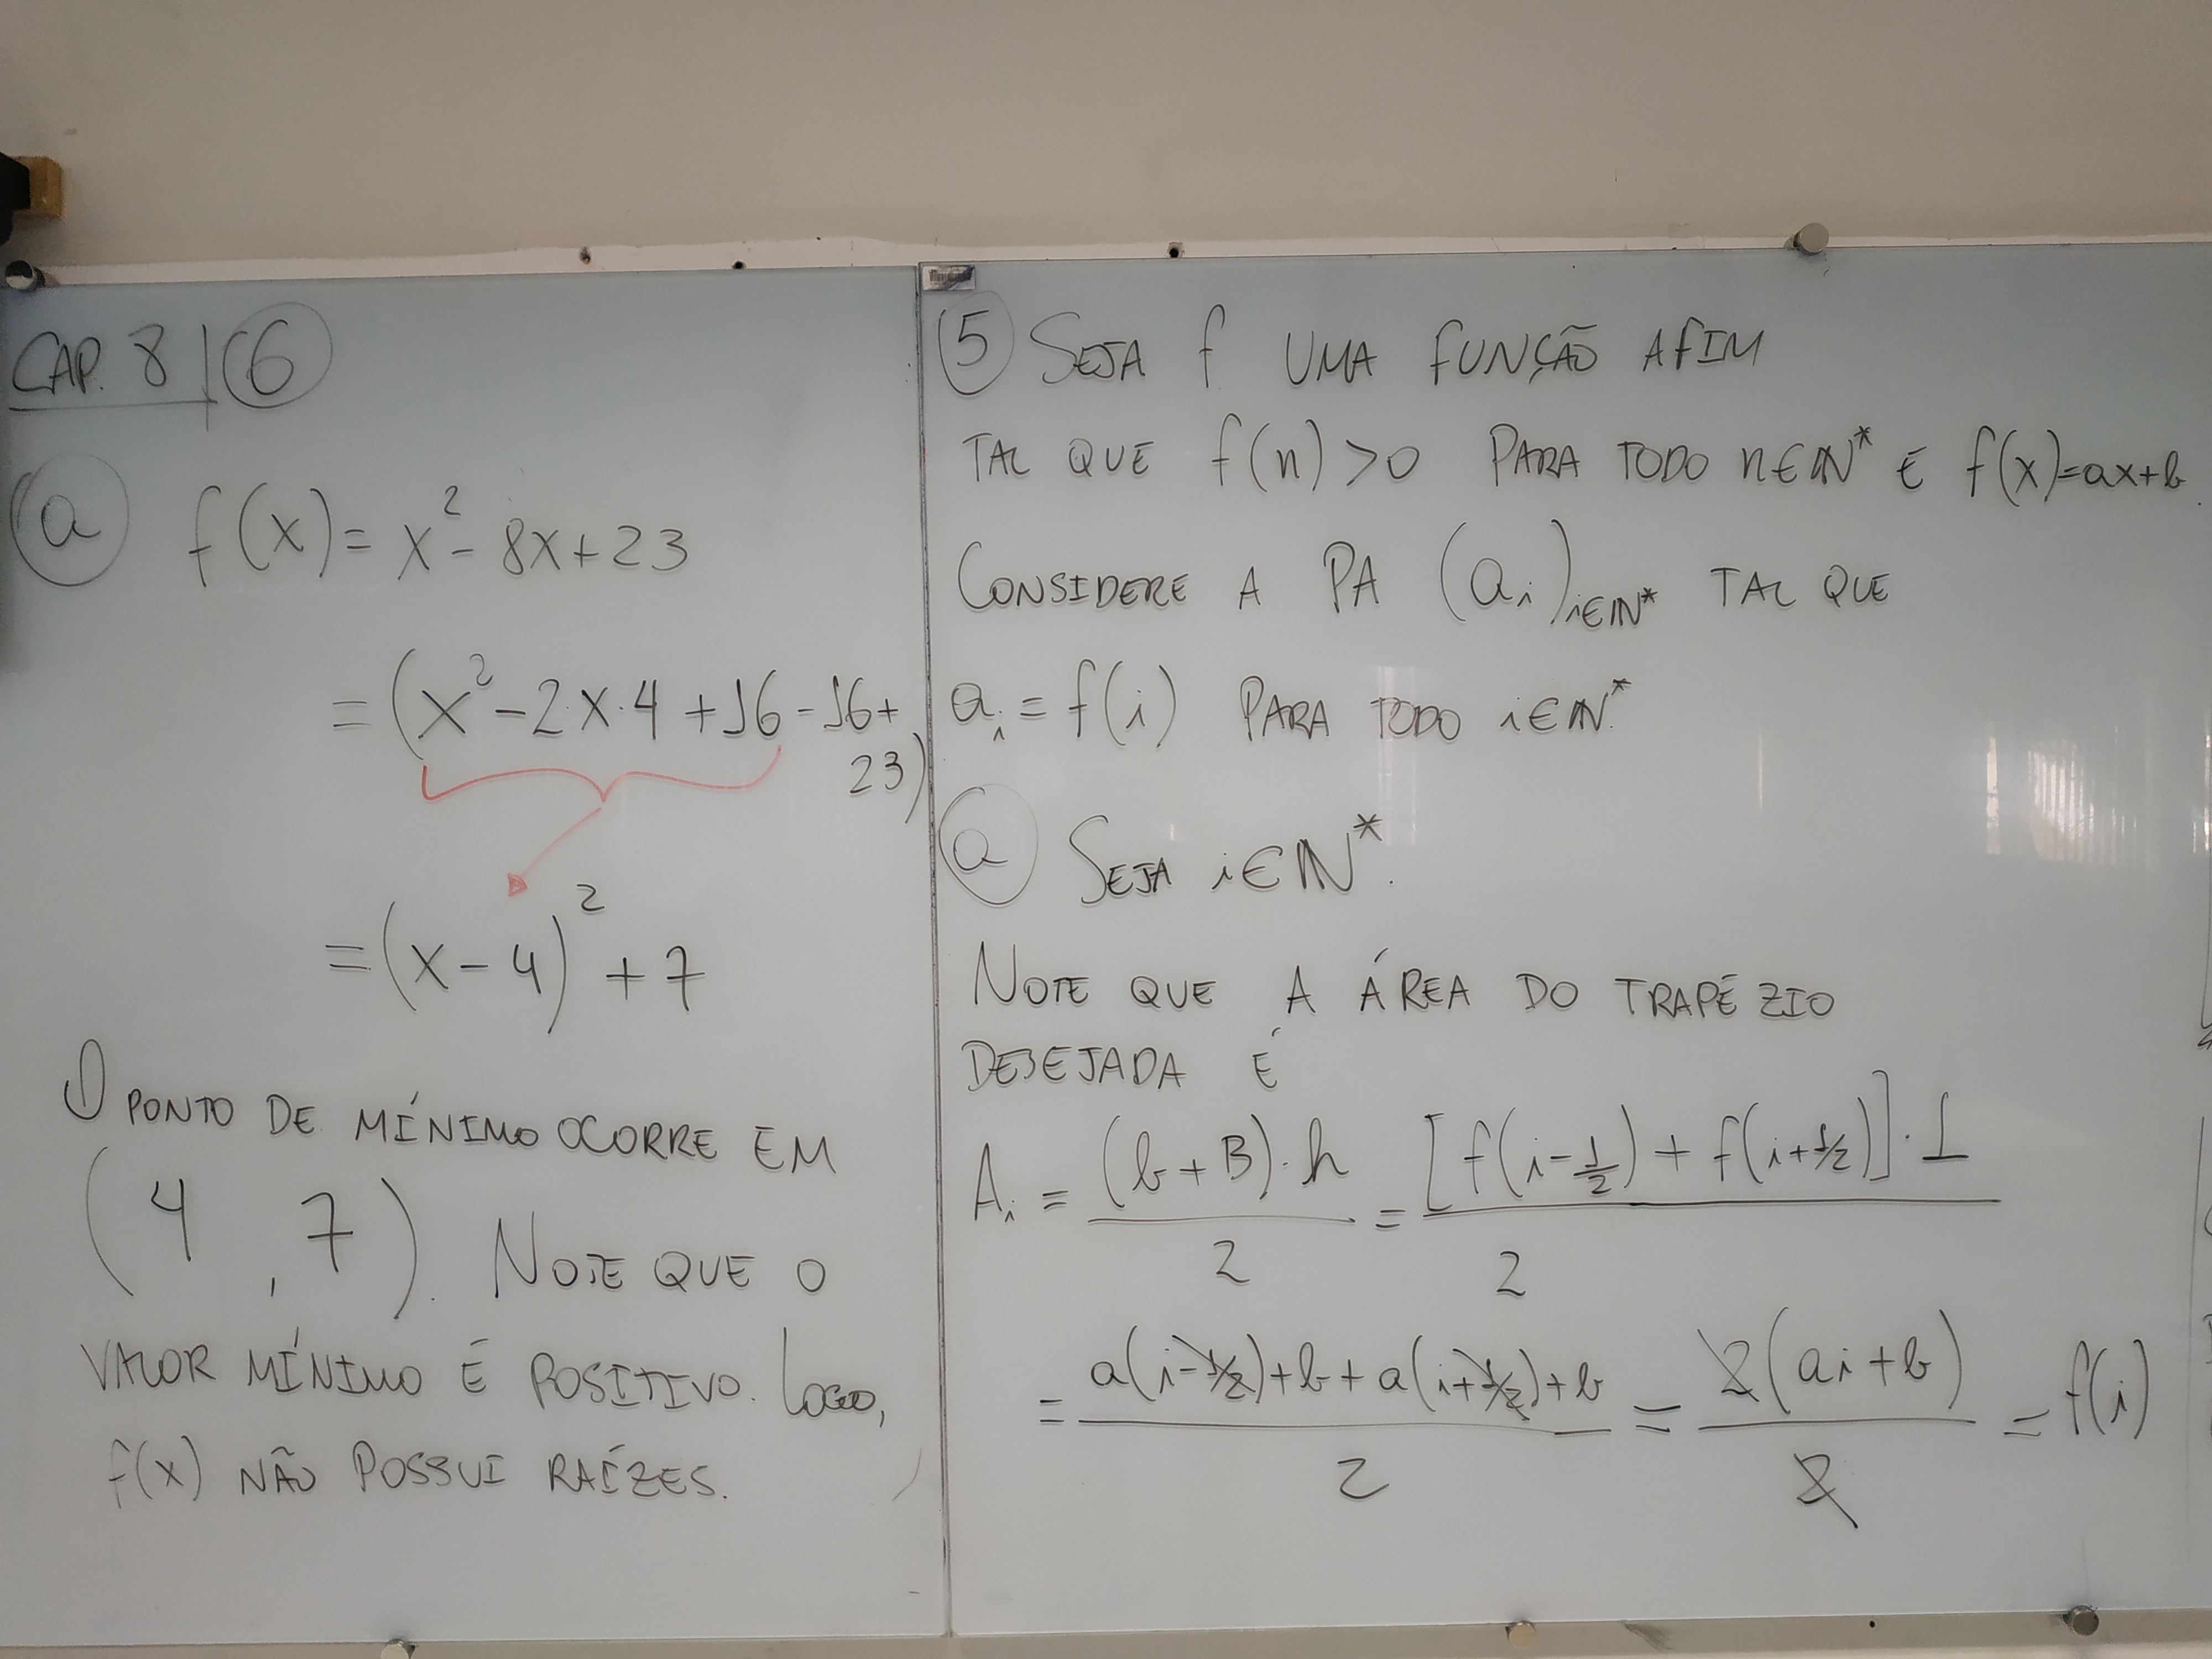 CAP. 8 | 6
a f(x) = x² - 8x + 23
= (x² - 2·x·4 + 16 - 16 +
23)
= (x - 4)² + 7
O PONTO DE MÍNIMO OCORRE EM
(4, 7). NOTE QUE O
VALOR MÍNIMO É POSITIVO. LOGO,
f(x) NÃO POSSUI RAÍZES.
5 SEJA f UMA FUNÇÃO AFIM
TAL QUE f(n) > 0 PARA TODO n∈ℕ* E f(x)=ax+b.
CONSIDERE A PA (aᵢ)i∈ℕ* TAL QUE
aᵢ = f(i) PARA TODO i∈ℕ*.
a SEJA i∈ℕ*.
NOTE QUE A ÁREA DO TRAPÉZIO
DESEJADA É
Aᵢ = (b + B)·h / 2 = [f(i - 1/2) + f(i + 1/2)]·1 / 2
= a(i - 1/2) + b + a(i + 1/2) + b / 2 = 2(ai + b) / 2 = f(i)